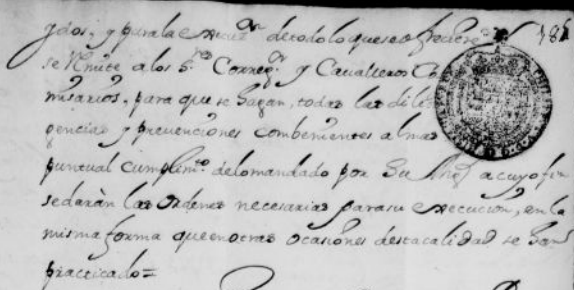 gdos, y para la execuzn. de todo lo que se ofreciere 181
se Remite a los Srs. Correxr. y Cavalleros Co
misarios, para que se hagan, todas las dili
gencias y prevenciones combenientes al mas
puntual cumplimto. de lo mandado por Su Magd. a cuyo fin
se daràn las ordenes necesarias para su execucion, en la
misma forma que en otras ocasiones de esta calidad se han
practicado =